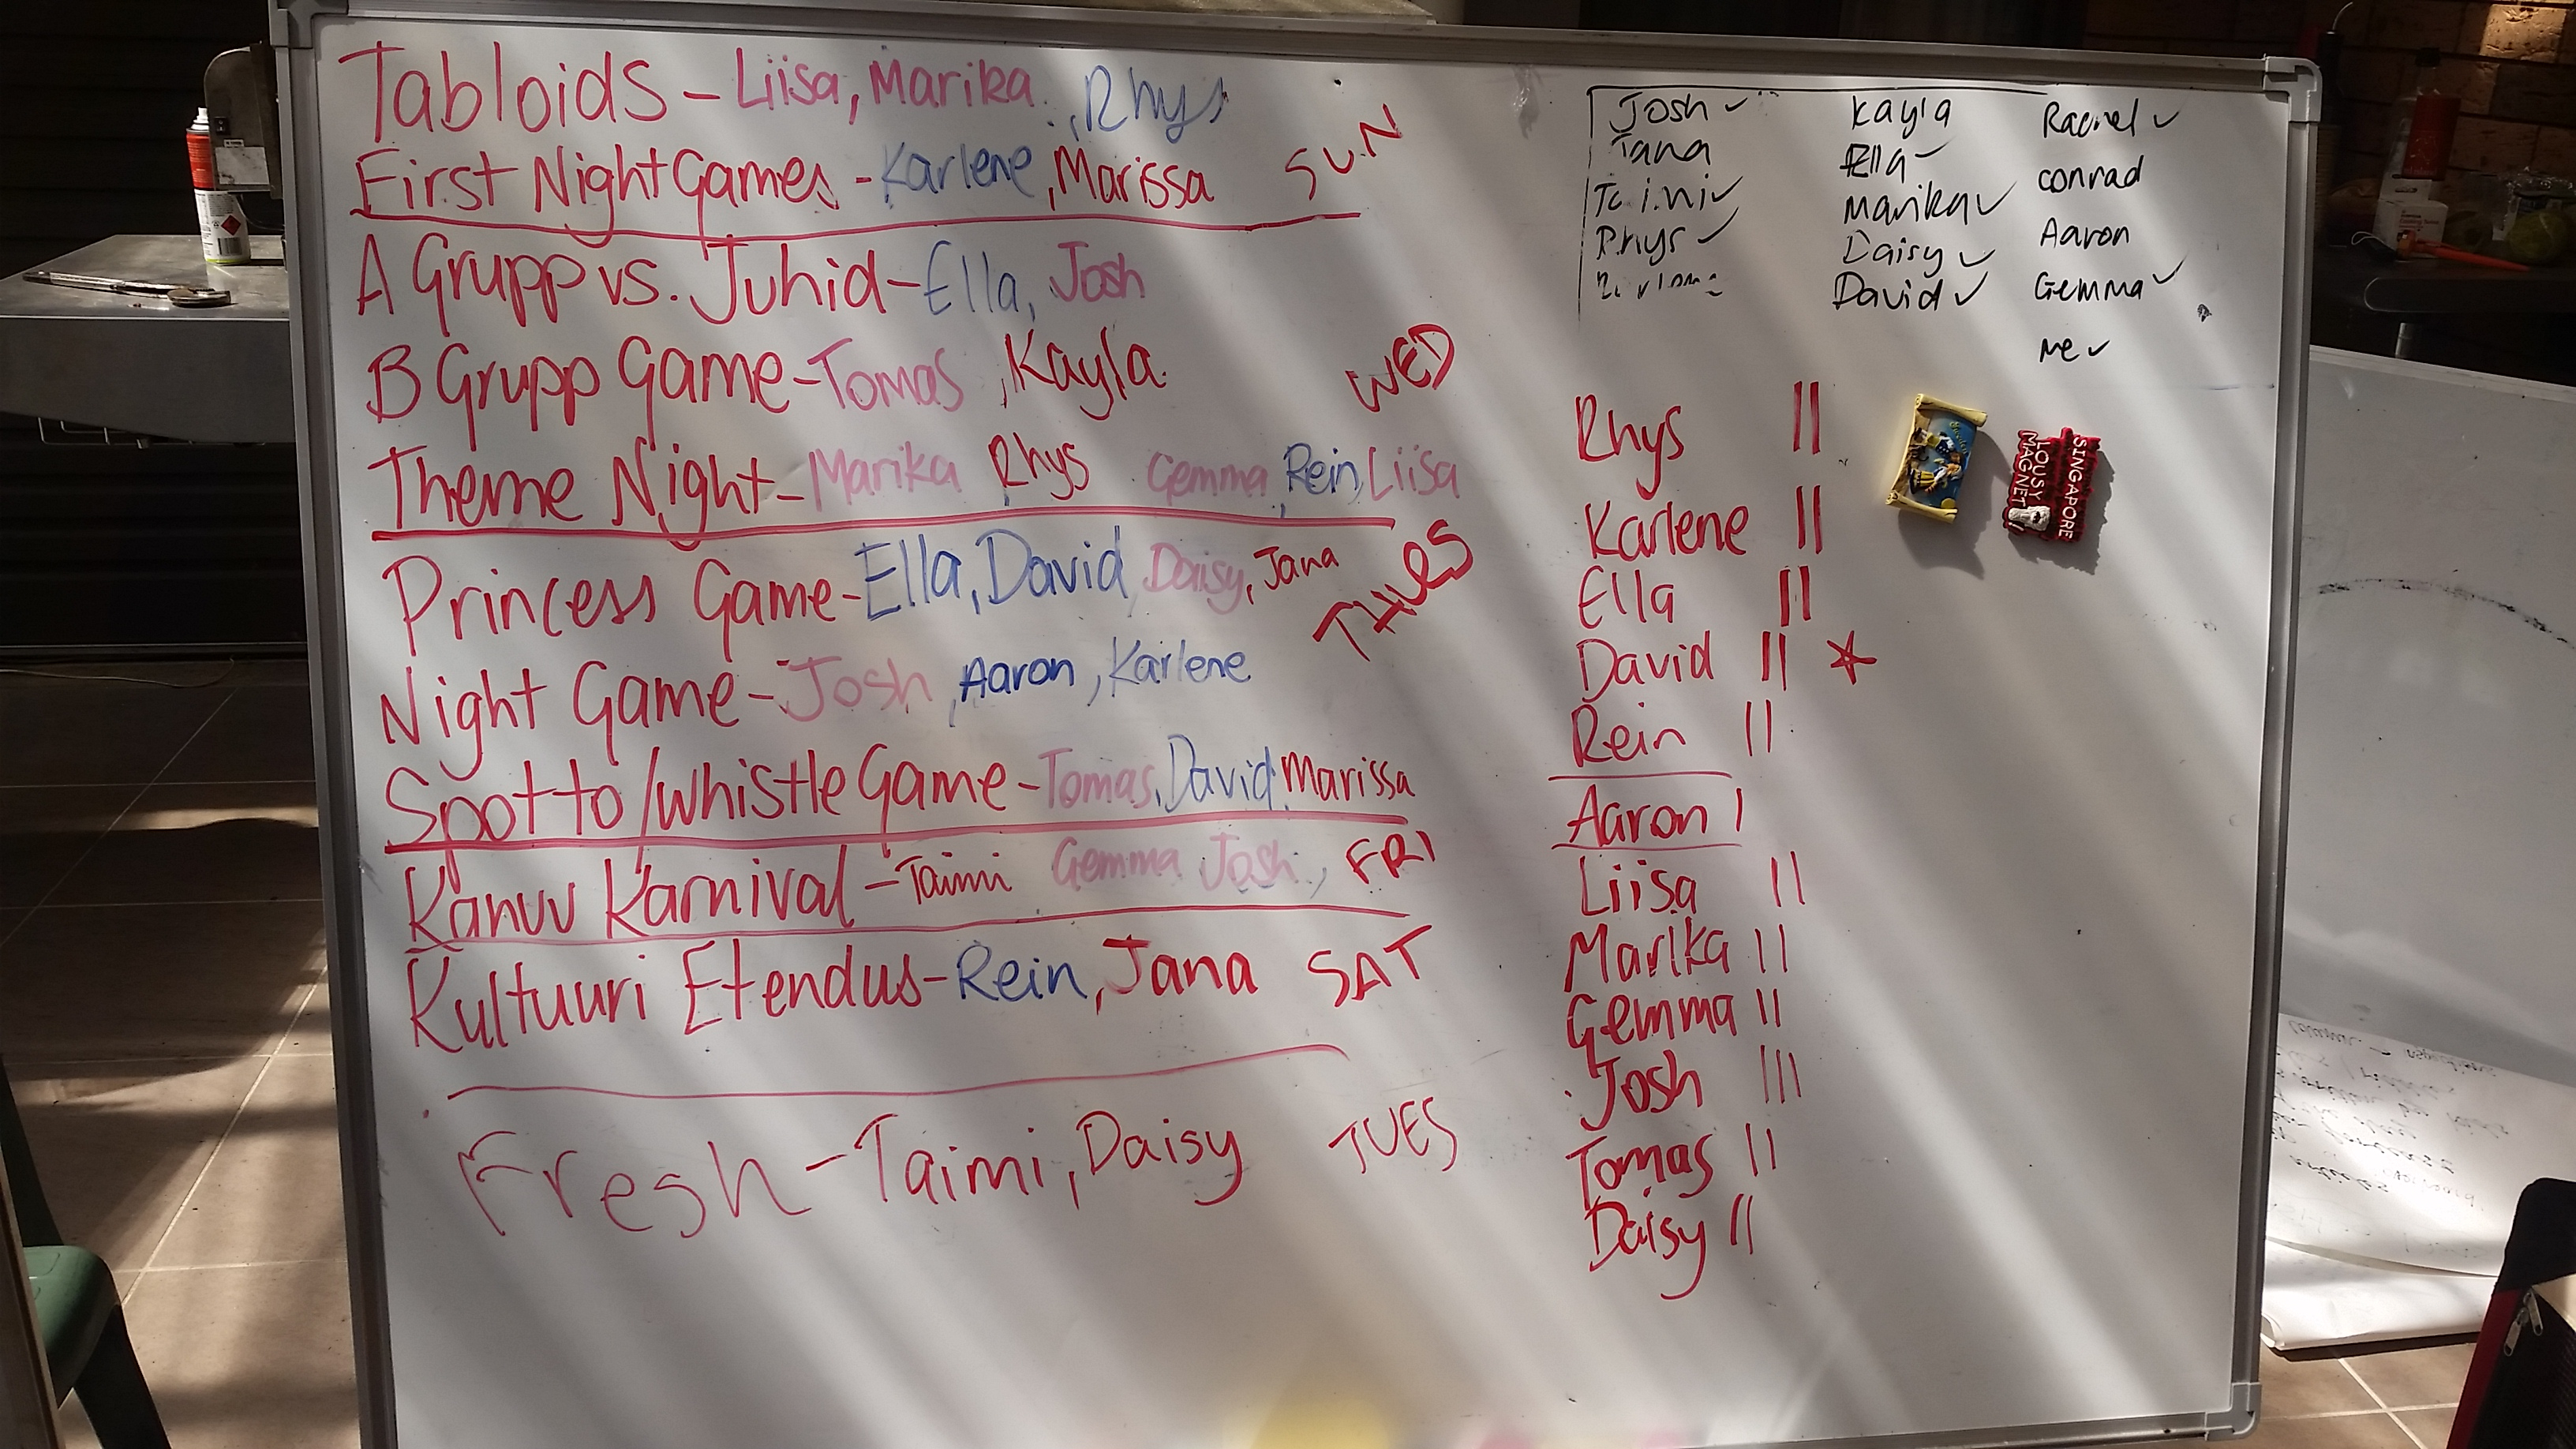 Tabloids - Liisa, Marika, Rhys
First Night Games - Karlene, Marissa SUN
A Grupp vs. Juhid - Ella, Josh
B Grupp Game - Tomas, Kayla. WED
Theme Night - Marika Rhys Gemma, Rein, Liisa
Princess Game - Ella, David, Daisy, Jana
THUES
Night Game - Josh, Aaron, Karlene
Spotto/Whistle Game - Tomas, David, Marissa
Kanuu Karnival - Taimi Gemma Josh, FRI
Kultuuri Etendus - Rein, Jana SAT
Fresh - Taimi, Daisy TUES
Josh ✓ Kayla Rachel ✓
Jana Ella ✓ conrad
✓ Marika ✓ Aaron
Rhys ✓ Daisy ✓ Gemma ✓
David ✓ me ✓
Rhys II
Karlene II
Ella II
David II ☆
Rein II
Aaron I
Liisa II
Marika II
Gemma II
Josh III
Tomas II
Daisy II
SINGAPORE
LOUSY
MAGNET